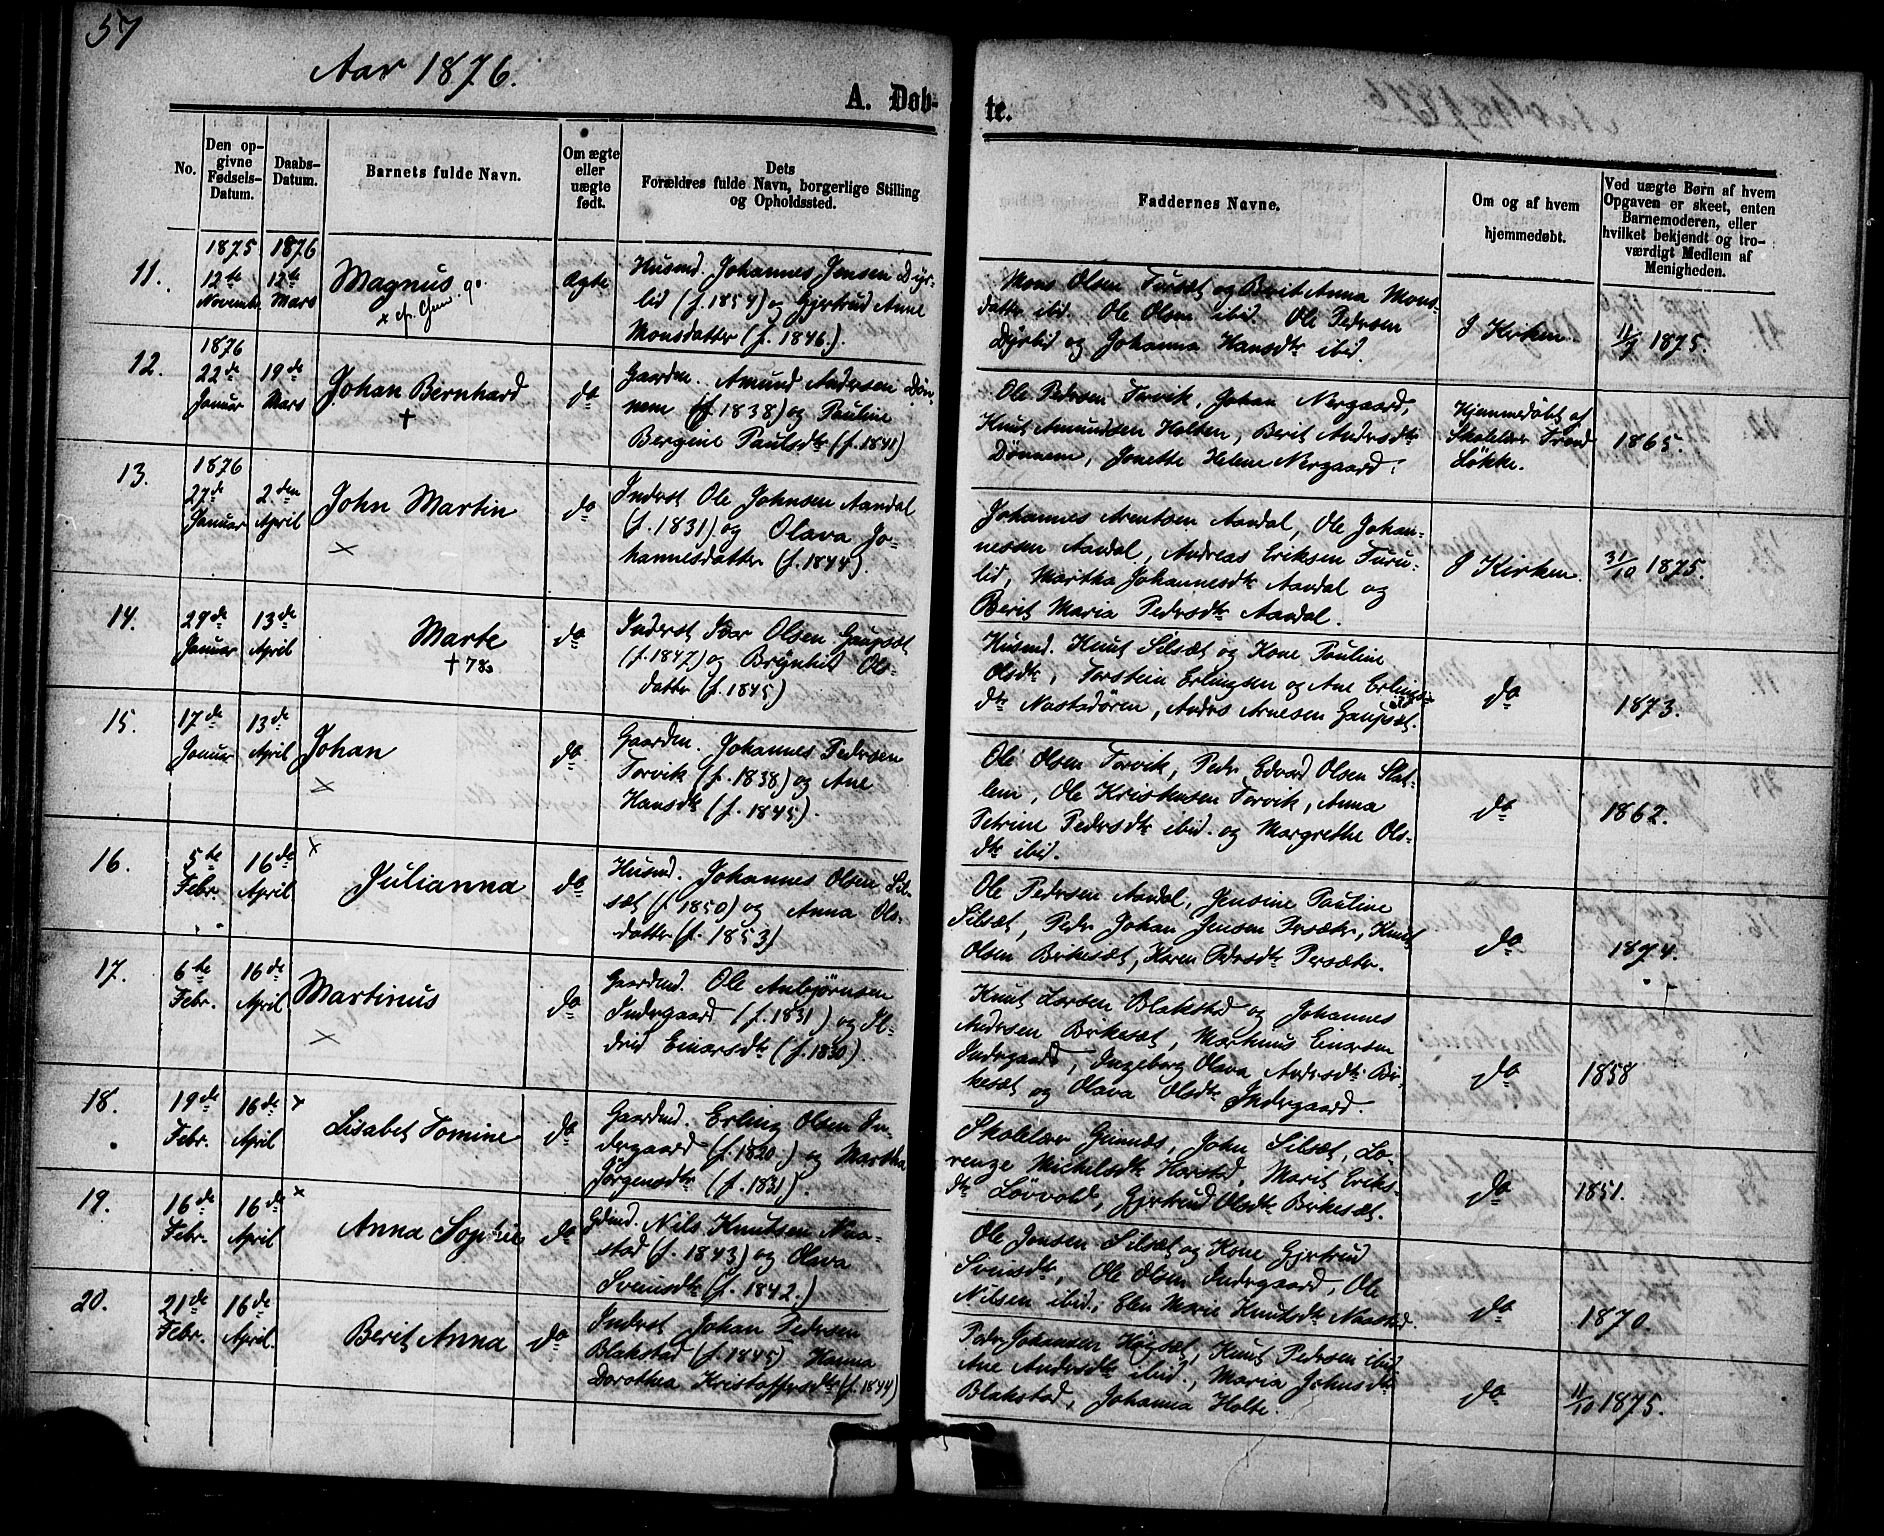 57
Aar 1876.
A. Døb-
te.
No.
Den op-
givne
Fødsels-
Datum.
Daabs-
Datum.
Barnets fulde Navn.
Om ægte
eller
uægte
født.
Dets
Forældres fulde Navn, borgerlige Stilling
og Opholdssted.
Faddernes Navne.
Om og af hvem
hjemmedøbt.
Ved uægte Børn af hvem
Opgaven er skeet, enten
Barnemoderen, eller
hvilket bekjendt og tro-
værdigt Medlem af
Menigheden.
11.
1875
12te
Novembr
1876
12te
Mars
Magnus
Ægte
Husmd. Johannes Jensen Dyr-
lid (f. 1854) og Gjertrud Anne
Monsdatter (f. 1846).
Mons Olsen Tusæt og Berit Anna Mons-
datter ibid. Ole Olsen ibid. Ole Pedersen
Dyrlid og Johanna Hansdtr ibid.
I Kirken.
11/9 1875.
12.
1876
22de
Januar
19de
Mars
Johan Bernhard
+
do
Gaardm. Amund Andersen Døn-
nem (f. 1838) og Pauline
Bergine Paulsdtr (f. 1841)
Ole Pedersen Torvik, Johan Nergaard,
Knut Amundsen Holten, Berit Andersdtr
Dønnem, Jonette Helene Nergaard.
Hjemmedøbt af
Skolelær Trond
Løkke.
1865.
13.
1876
27de
Januar
2den
April
John Martin
x
do
Inderst Ole Johnsen Aandal
(f. 1831) og Olava Jo-
hannesdatter (f. 1844).
Johannes Arentsen Aandal, Ole Johan-
nessen Aandal, Andreas Eriksen Furu-
lid, Martha Johannesdtr Aandal og
Berit Maria Pedersdtr Aandal.
I Kirken.
31/10 1875.
14.
29de
Januar
13de
April
Marte
+ 78
do
Inderst Ivar Olsen Gaupsæt
(f. 1847) og Brynhild Ols-
datter (f. 1845)
Husmd. Knut Silsæt og Kone Pauline
Olsdtr, Torstein Erlingsen og Ane Erlings-
dtr Nastadøren, Anders Arnesen Gaupsæt.
do
1873.
15.
17de
Januar
13de
April
Johan
x
do
Gaardm. Johannes Pedersen
Torvik (f. 1838) og Ane
Hansdtr (f. 1845).
Ole Olsen Torvik, Peder Edvard Olsen Slat-
lem, Ole Kristensen Torvik, Anna
Petrine Pedersdtr ibid. og Margrethe Ols-
dtr ibid.
do
1862.
16.
5te
Febr.
16de
April
x
Julianna
do
Husmd. Johannes Olsen Sil-
sæt (f. 1850) og Anna Ols-
datter (f. 1853)
Ole Pedersen Aandal, Jensine Pauline
Silsæt, Peder Johan Jensen Persæter, Knut
Olsen Birkesæt, Karen Pedersdtr Persæter.
do
1874.
17.
6te
Febr.
16de
April
Martinus
x
do
Gaardmd. Ole Anbjørnsen
Indergaard (f. 1831) og Il-
drid Einarsdtr (f. 1830).
Knut Larsen Blakstad og Johannes
Andersen Birkesæt, Martinus Einarsen
Indergaard, Ingeborg Olava Andersdtr Bir-
kesæt og Olava Olsdtr Indergaard.
do
1858
18.
19de
Febr.
16de
April
x
Lisabet Tomine
do
Gaardmd. Erling Olsen In-
dergaard (f. 1820) og Martha
Jørgensdtr (f. 1831).
Skolelær Grinnæs, John Silsæt, Lo-
renze Michelsdtr Harstad, Marit Eriks-
dtr Løvvold, Gjertrud Olsdtr Birkesæt.
do
1851.
19.
16de
Febr.
16de
April
x
Anna Sophie
do
Gdmd. Nils Knutsen Naa-
stad (f. 1843) og Olava
Sveinsdtr (f. 1842.)
Ole Jensen Silsæt og Kone Gjertrud
Sveinsdtr, Ole Olsen Indergaard, Ole
Nilsen ibid., Elen Marie Knutsdtr Naastad.
do
1870.
20.
21de
Febr.
16de
April.
Berit Anna
do
Inderst Johan Pedersen
Blakstad (f. 1845) Hanna
Dorothea Kristoffersdtr (f. 1844)
Peder Johansen Høgsæt, Knut Pedersen ibid
Ane Andersdtr ibid., Maria Johnsdtr
Blakstad, Johanna Holte.
do
11/10 1875.